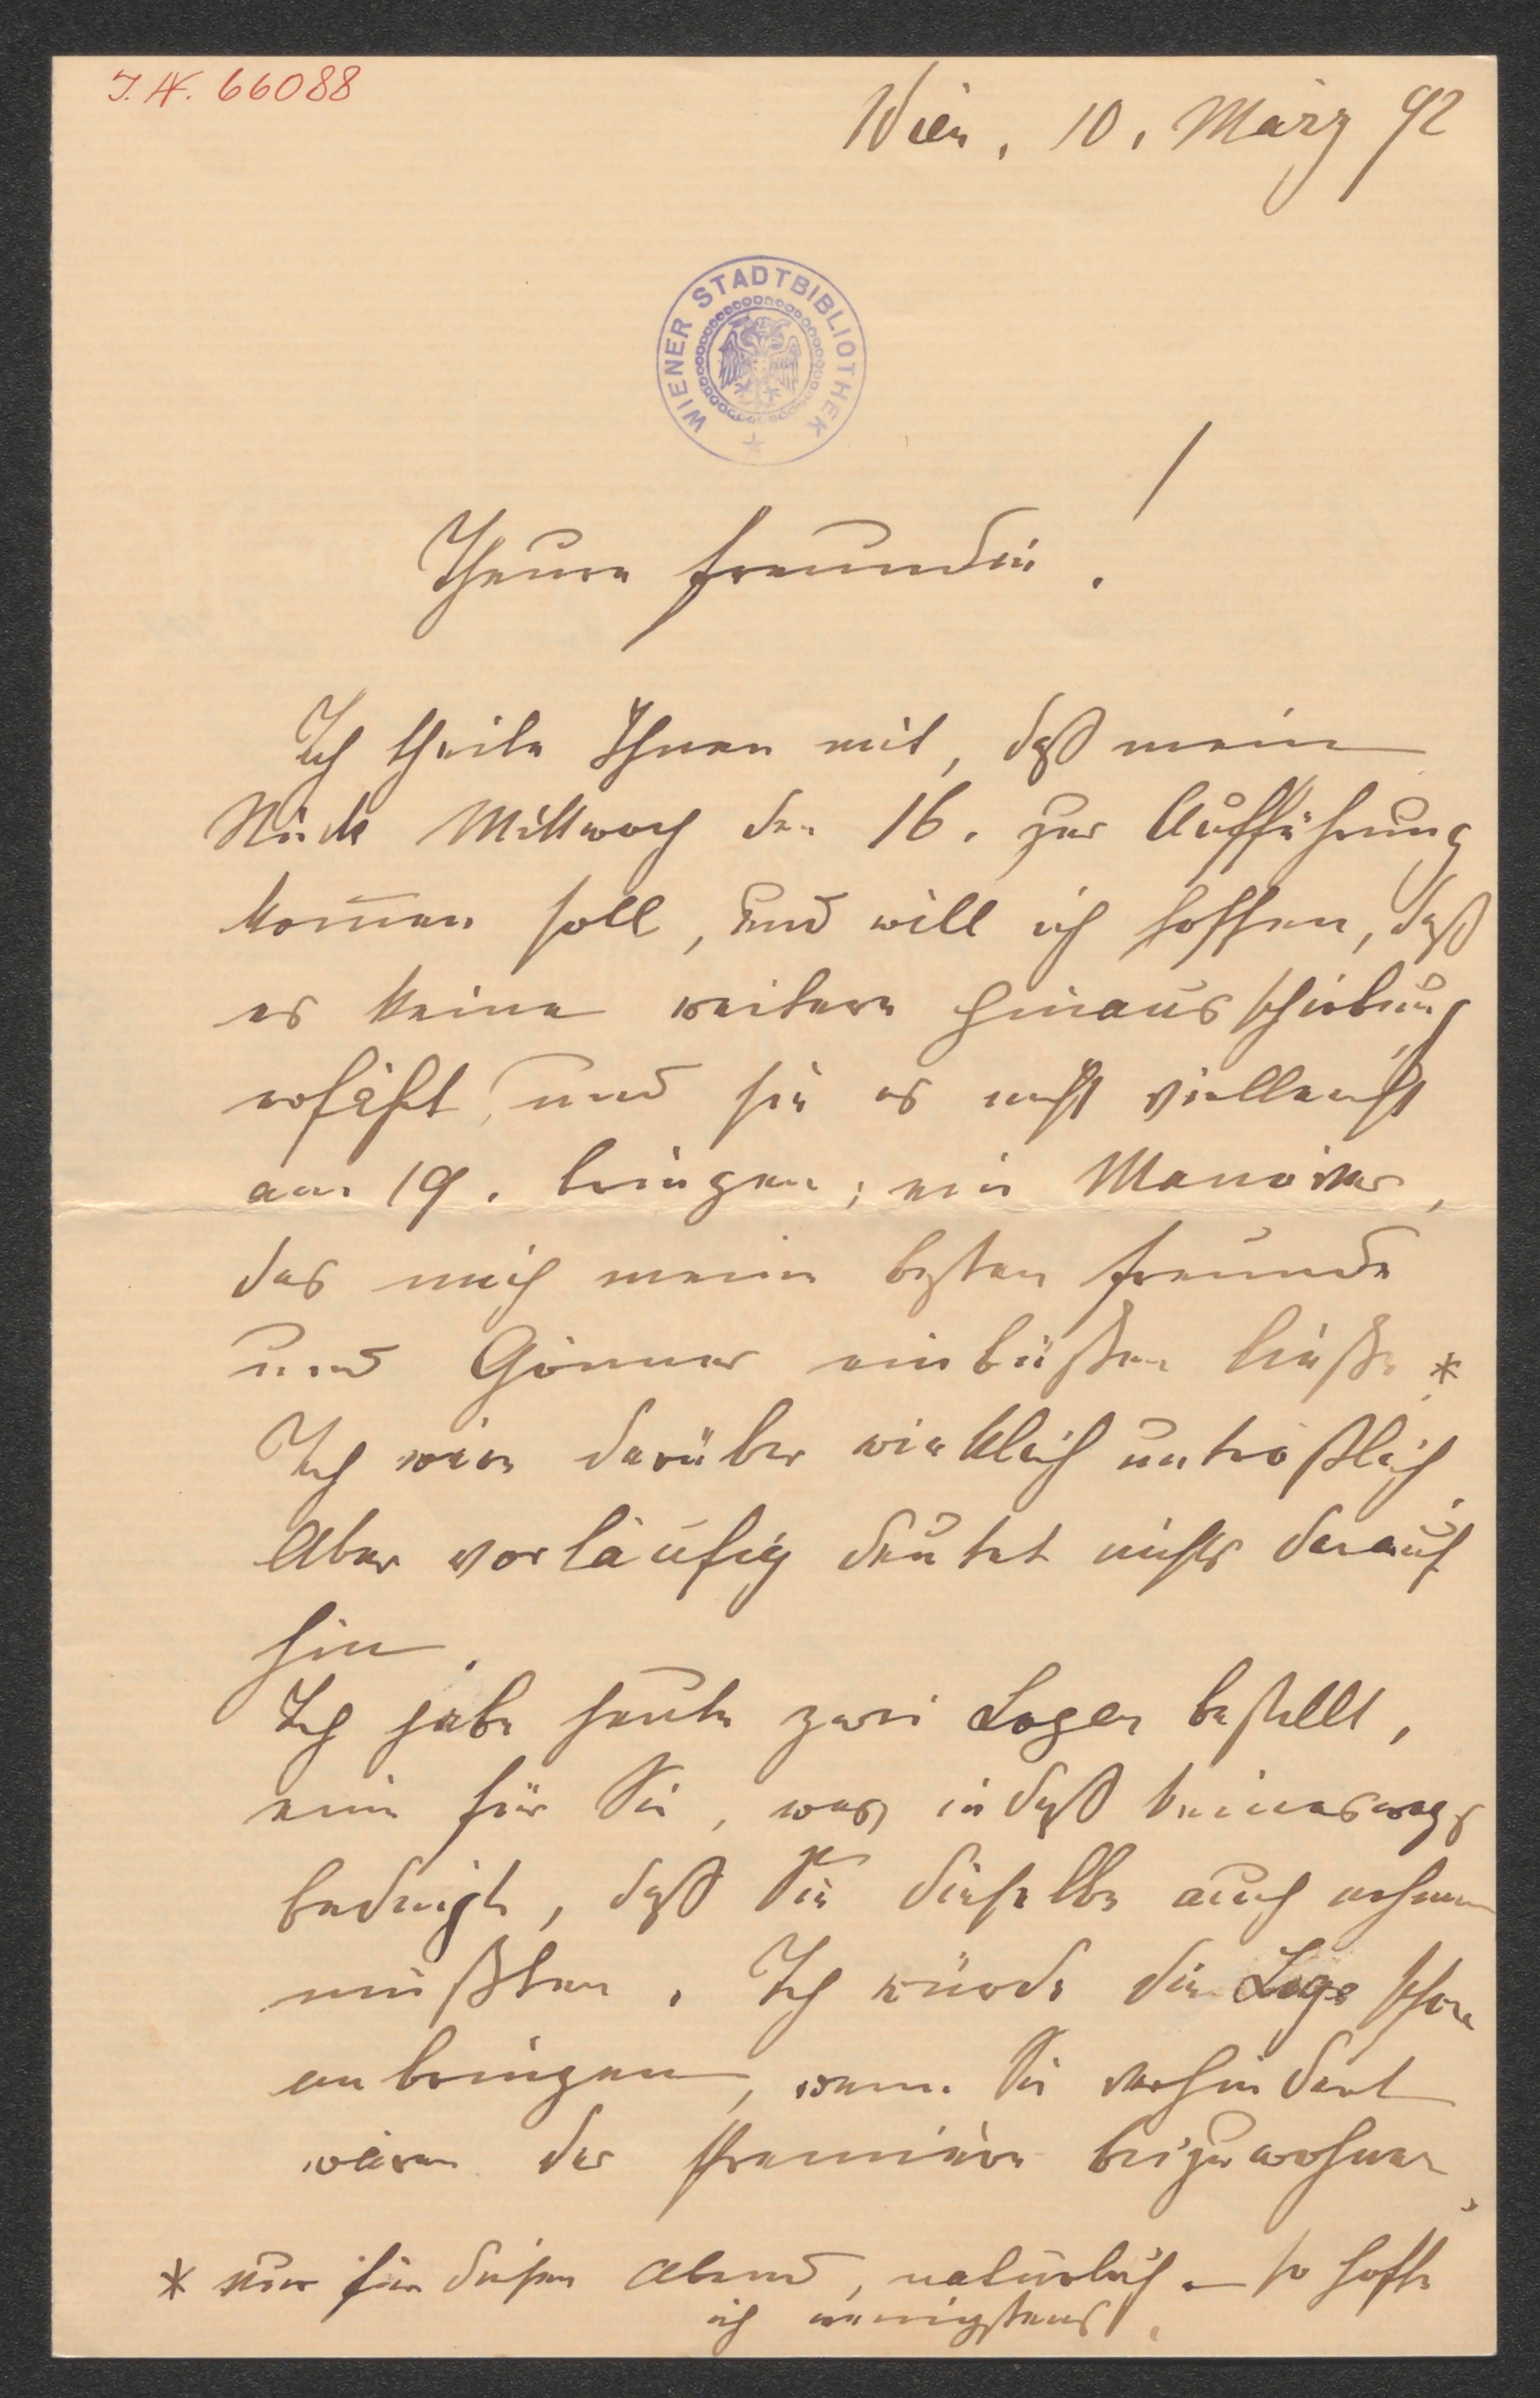 J. N. 66088
Wien, 10. März 92
WIENER STADTBIBLIOTHEK
Theure Freundin!
Ich theile Ihnen mit, daß mein
Stück Mittwoch den 16. zur Aufführung
kommen soll, und will ich hoffen, daß
es keine weitere Hinausschiebung
erfährt, und sie es nicht vielleicht
am 19. bringen; ein Manöver,
das mich meine besten Freunde
und Gönner einbüßen ließe *
Ich wäre darüber wirklich untröstlich.
Aber vorläufig deutet nichts darauf
hin.
Ich habe heute zwei Logen bestellt,
eine für Sie, was indeß keineswegs
bedingt, daß Sie dieselbe auch nehmen
müßten. Ich würde die Loge schon
anbringen, wenn Sie verhindert
wären der Première beizuwohnen,
* Nur für diesen Abend, natürlich. – so hoffe
ich wenigstens.